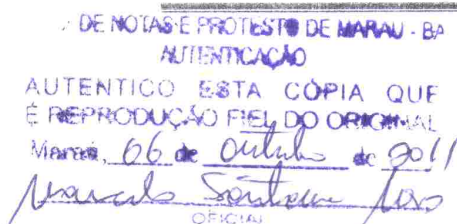 DE NOTAS E PROTESTO DE MARAU - BA
AUTENTICAÇÃO
AUTENTICO ESTA CÓPIA QUE
É REPRODUÇÃO FIEL DO ORIGINAL
Marau, 06 de Outubro de 2011
OFICIAL